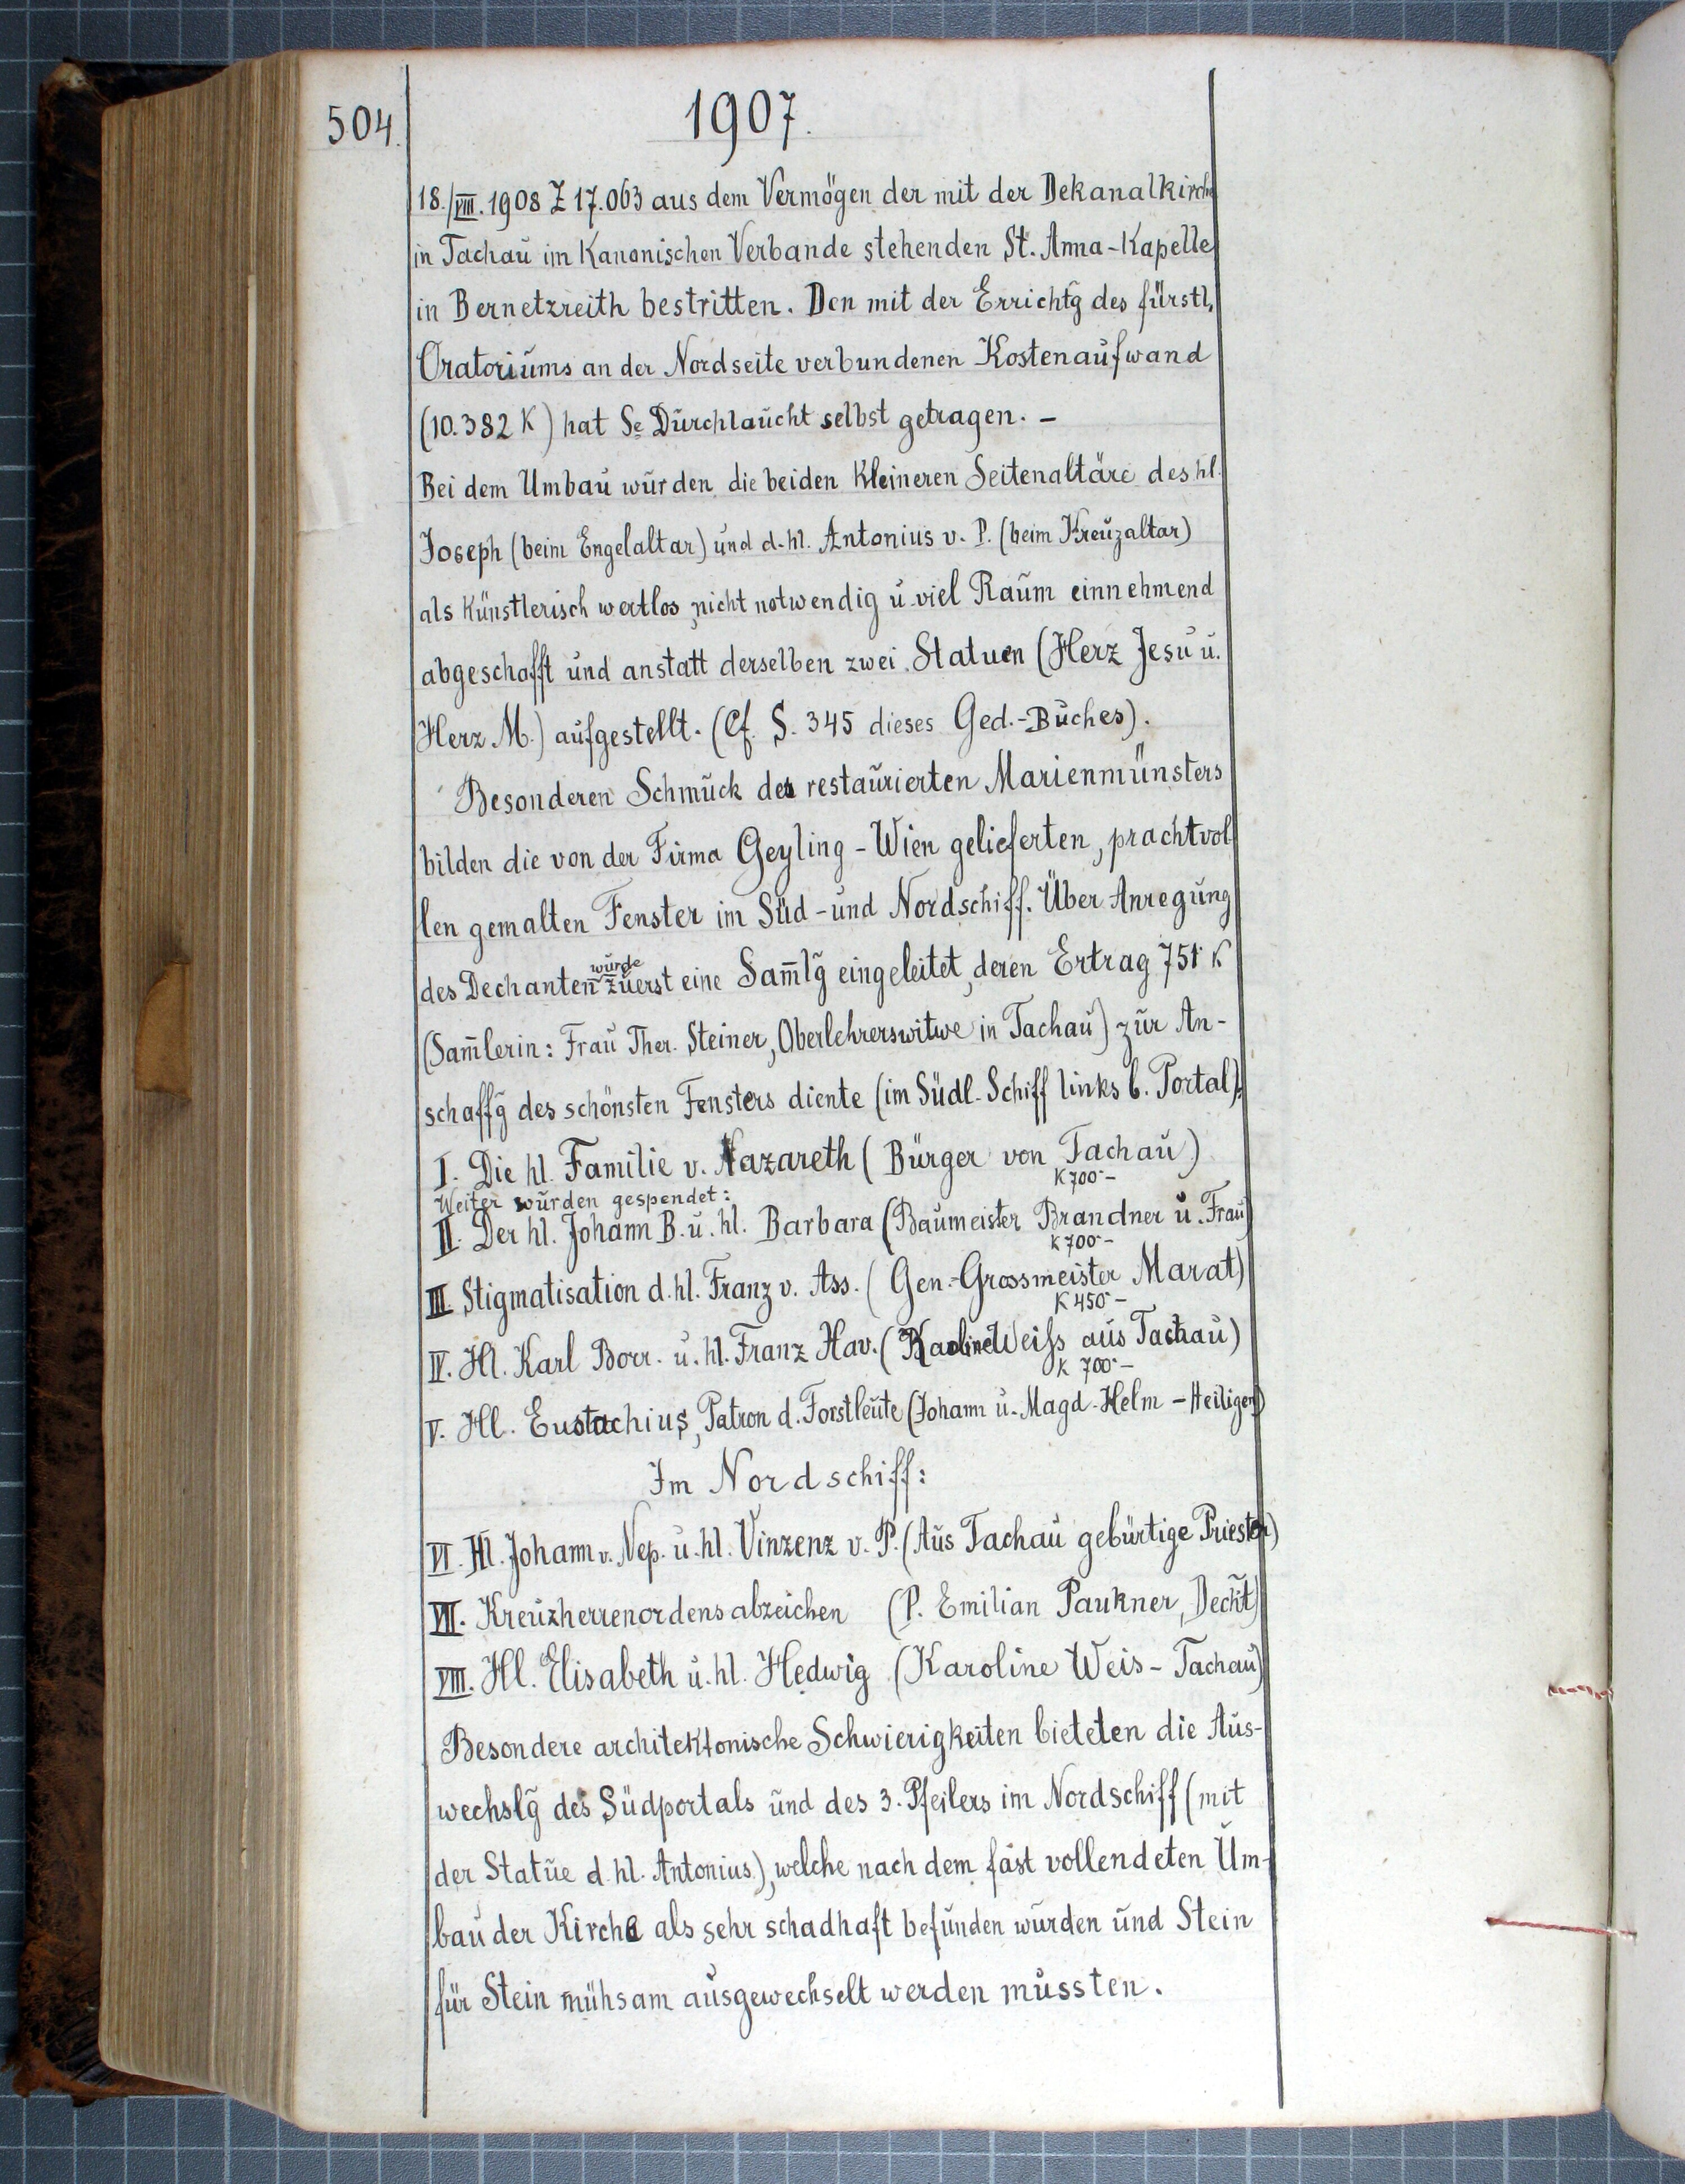 504.
1907.
18./VIII. 1908 Z 17.063 aus dem Vermögen der mit der Dekanalkirche
in Tachau im Kanonischen Verbande stehenden St. Anna-Kapelle
in Bernetzreith bestritten. Den mit der Errichtg̃ des fürstl.
Oratoriums an der Nordseite verbundenen Kostenaufwand
(10.382 K) hat Se Durchlaucht selbst getragen. –
Bei dem Umbau wurden die beiden Kleineren Seitenaltäre des hl.
Joseph (beim Engelaltar) und d. hl. Antonius v. P. (beim Kreuzaltar)
als Künstlerisch wertlos, nicht notwendig u. viel Raum einnehmend
abgeschafft und anstatt derselben zwei Statuen (Herz Jesu u.
Herz M.) aufgestellt. (Cf. S. 345 dieses Ged.-Buches).
Besonderen Schmuck des restaurierten Marienmünsters
bilden die von der Firma Geyling - Wien gelieferten, prachtvol
len gemalten Fenster im Süd- und Nordschiff. Über Anregung
des Dechanten wurde zuerst eine Sam̄lg̃ eingeleitet, deren Ertrag 751 K
(Sam̄lerin: Frau Ther. Steiner, Oberlehrerswitwe in Tachau) zur An-
schaffg̃ des schönsten Fensters diente (im Südl. Schiff links b. Portal):
I. Die hl. Familie v. Nazareth (Bürger von Tachau)
K 700 –
Weiter wurden gespendet:
II. Der hl. Johann B. u. hl. Barbara (Baumeister Brandner u. Frau)
K 700 –
III. Stigmatisation d. hl. Franz v. Ass. (Gen.-Grossmeister Marat)
K 450 –
IV. Hl. Karl Borr. u. hl. Franz Xav. (Karoline Weiss aus Tachau)
K 700 –
V. Hl. Eustachius, Patron d. Forstleute (Johann u. Magd. Helm - Heiligen)
Im Nordschiff:
VI. Hl. Johann v. Nep. u. hl. Vinzenz v. P. (Aus Tachau gebürtige Priester)
VII. Kreuzherrenordensabzeichen (P. Emilian Paukner, Decht̃)
VIII. Hl. Elisabeth u. hl. Hedwig (Karoline Weis - Tachau)
Besondere architektonische Schwierigkeiten bieteten die Aus-
wechslg̃ des Südportals und des 3. Pfeilers im Nordschiff (mit
der Statue d. hl. Antonius), welche nach dem fast vollendeten Um-
bau der Kirche als sehr schadhaft befunden wurden und Stein
für Stein mühsam ausgewechselt werden mussten.